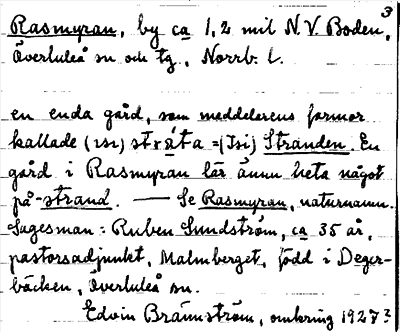 3
Rasmyran, by ca 1,2 mil N.V. Boden,
Överluleå sn och tg., Norrb. l.
en enda gård, som meddelarens farmor
kallade (ısı) stráta = (Isi) Stranden. En
gård i Rasmyran lär ännu heta något
på -strand. — Se Rasmyran, naturnamn.
Sagesman: Ruben Sundström, ca 35 år,
pastorsadjunkt, Malmberget, född i Deger-
bäcken, Överluleå sn.
Edvin Brännström, omkring 1927?